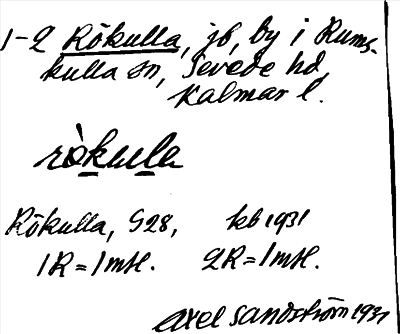 1-2 Rökulla, jb, by i Rums-
kulla sn, Sevede hd,
Kalmar l.
ròkula
Rökulla, G28, kb 1931
1R = 1 mtl. 2R = 1 mtl.
Axel Sandström 1931